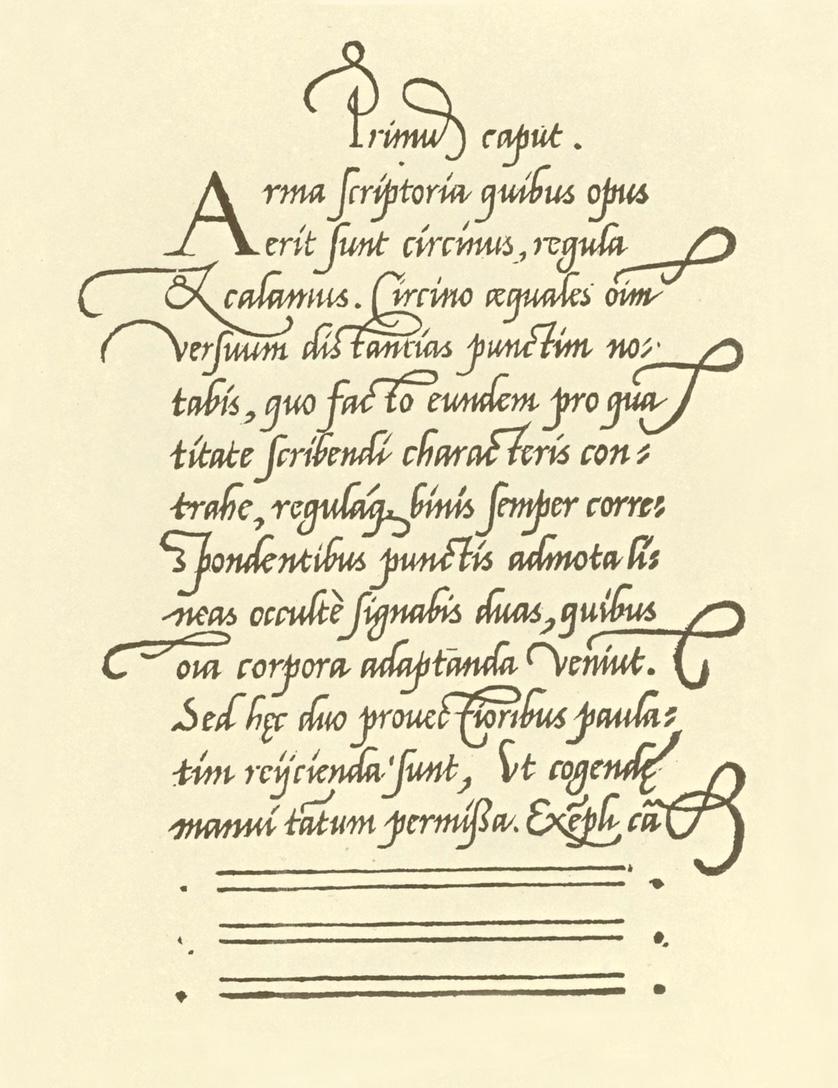 Primus caput.
Arma scriptoria quibus opus
erit sunt circinus, regula
& calamus. Circino æquales oim̄
versuum distantias punctim no⸗
tabis, quo facto eundem pro qua
titate scribendi characteris con⸗
trahe, regulaq́; binis semper corre⸗
spondentibus punctis admota li⸗
neas occultè signabis duas, quibus
oīa corpora adaptanda veniūt.
Sed hęc duo provectioribus paula⸗
tim reijcienda sunt, Vt cogendę
manui tātum permißa. Exēpli cā